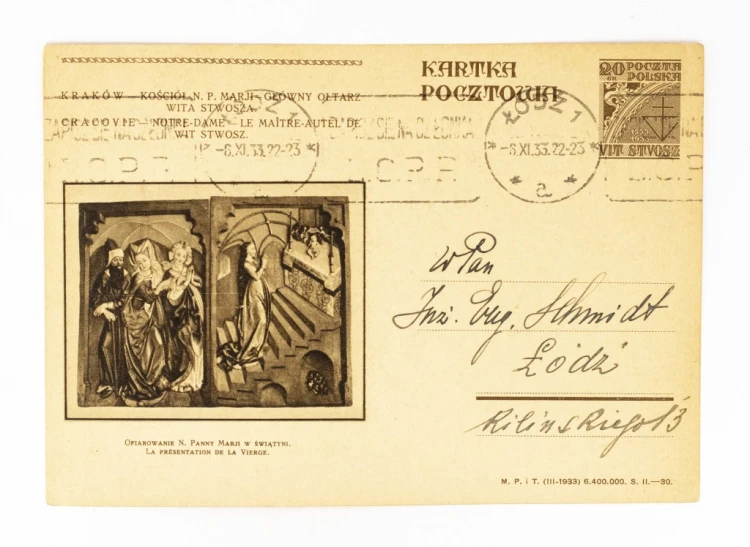 KARTKA
POCZTOWA
20 GR POCZTA
POLSKA
VIT STVOSZ
KRAKÓW – KOŚCIÓŁ N. P. MARJI – GŁÓWNY OŁTARZ
WITA STWOSZA.
CRACOVIE – NOTRE-DAME – LE MAÎTRE-AUTEL DE
WIT STWOSZ.
ŁÓDŹ 1
-6.XI.33.22-23
a
-6.XI.33.22-23
NA CZŁONKA
WPan
Inż. Eug. Schmidt
Łódź
Kilińskiego 13
OFIAROWANIE N. PANNY MARJI W ŚWIĄTYNI.
LA PRÉSENTATION DE LA VIERGE.
M. P. i T. (III-1933) 6.400.000. S. II.—30.